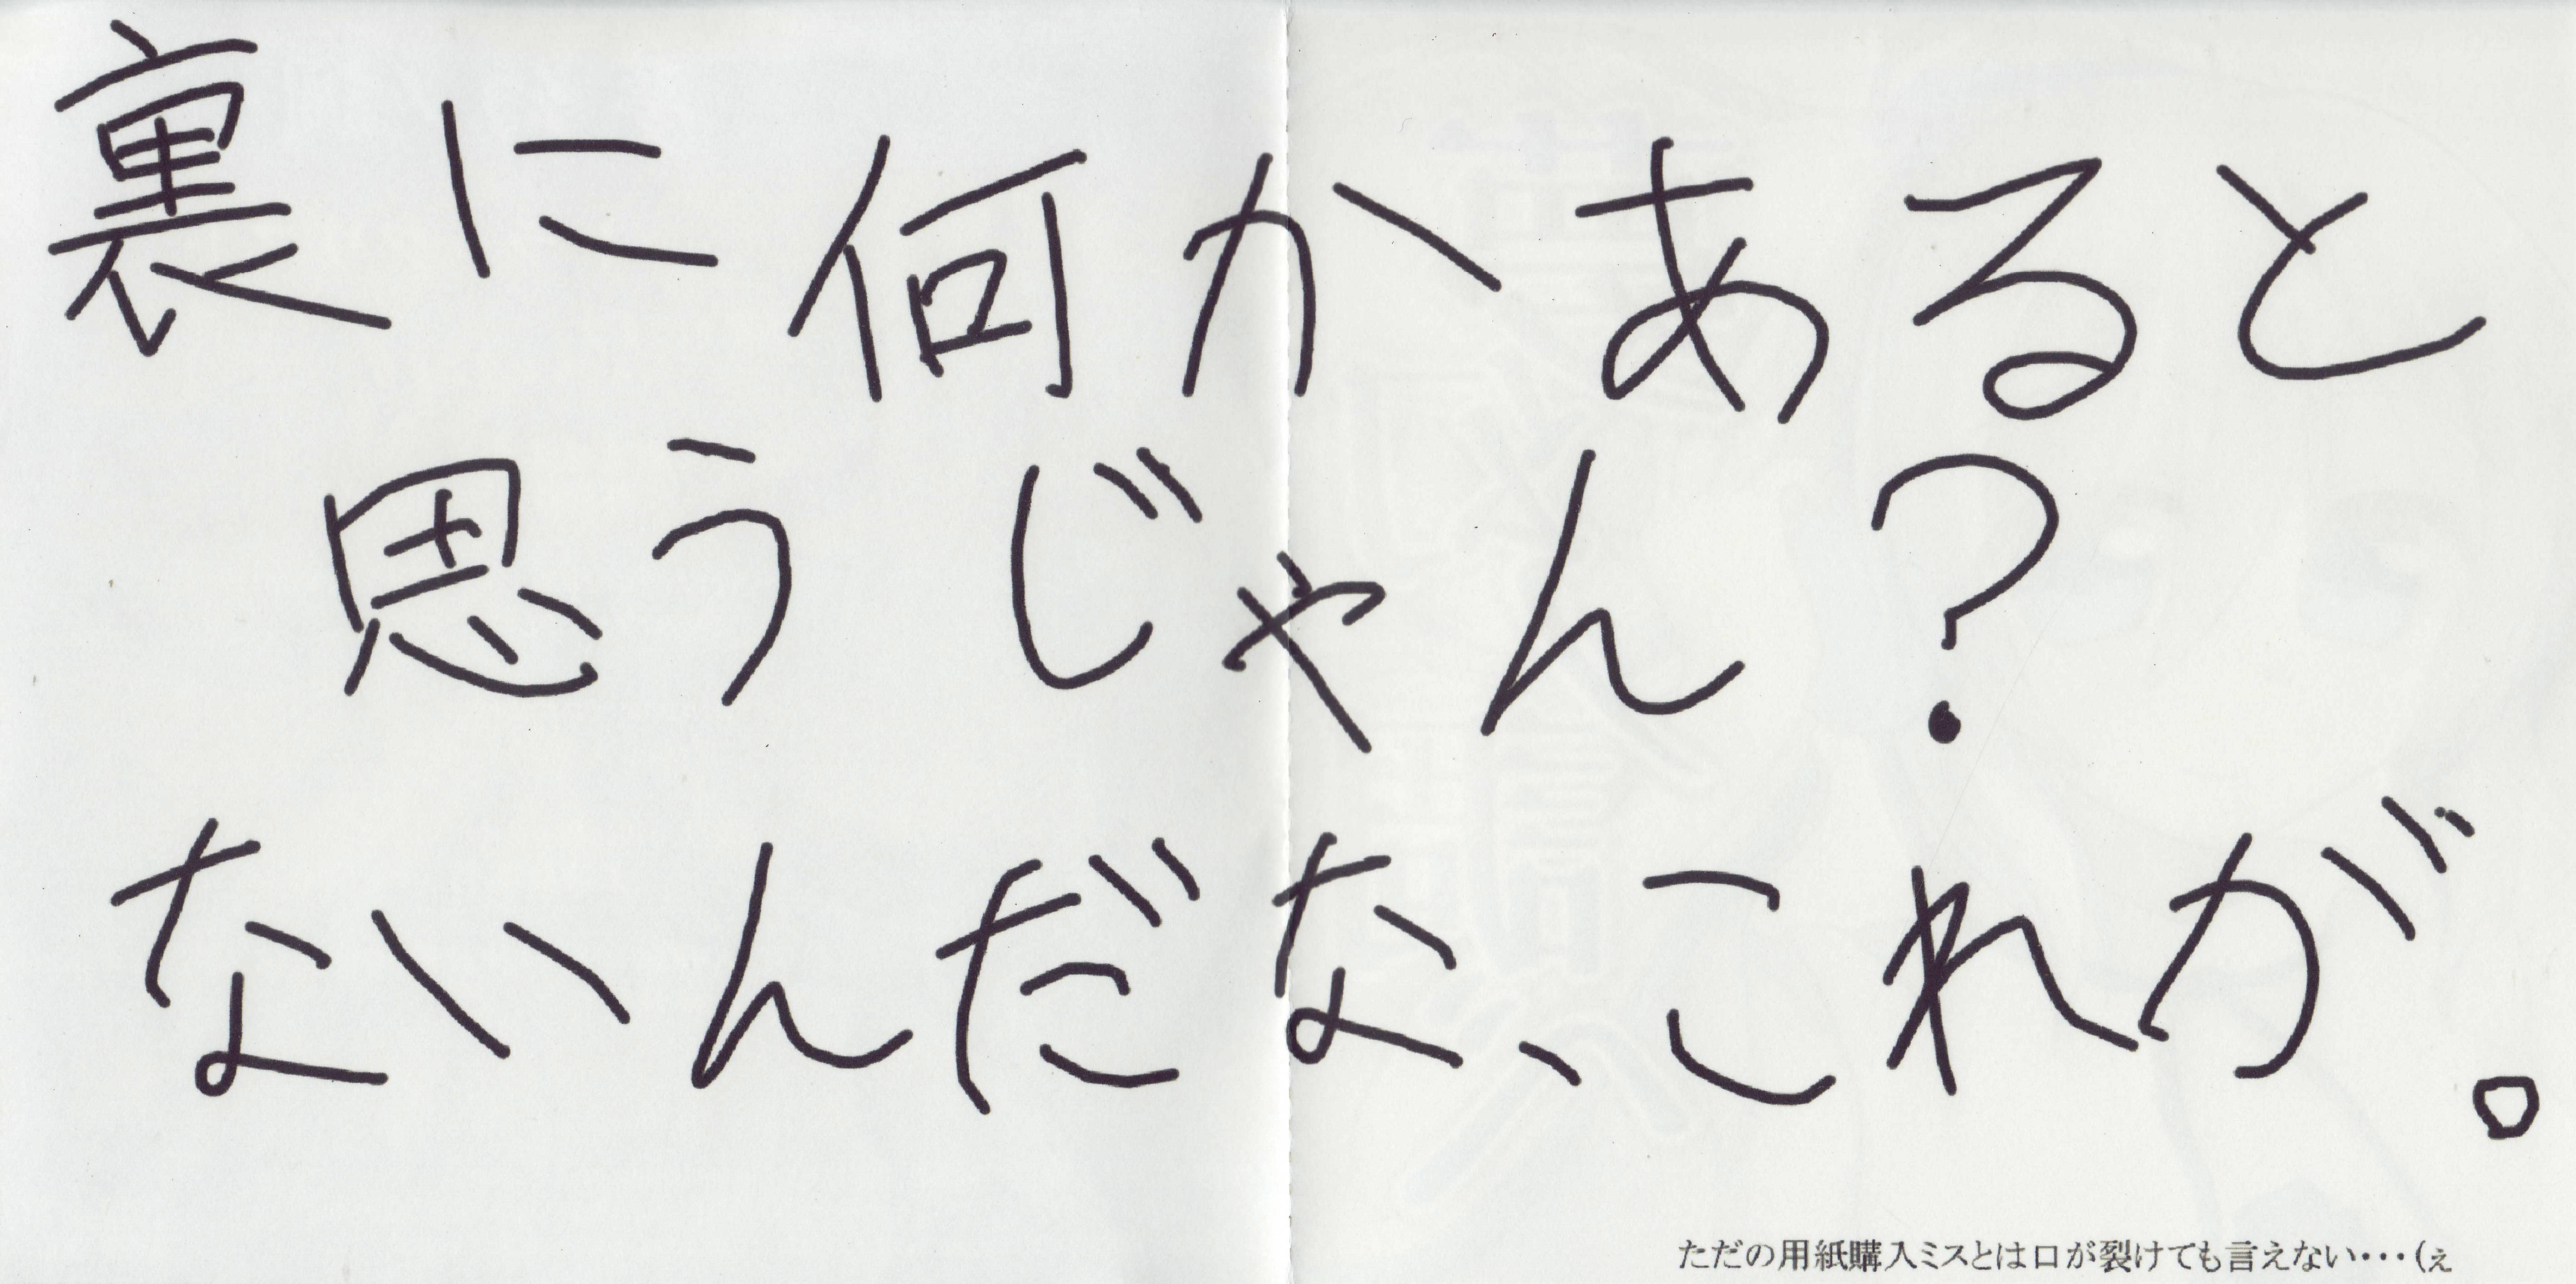 裏に何かあると
思うじゃん?
ないんだな、これが。
ただの用紙購入ミスとは口が裂けても言えない・・・(ぇ